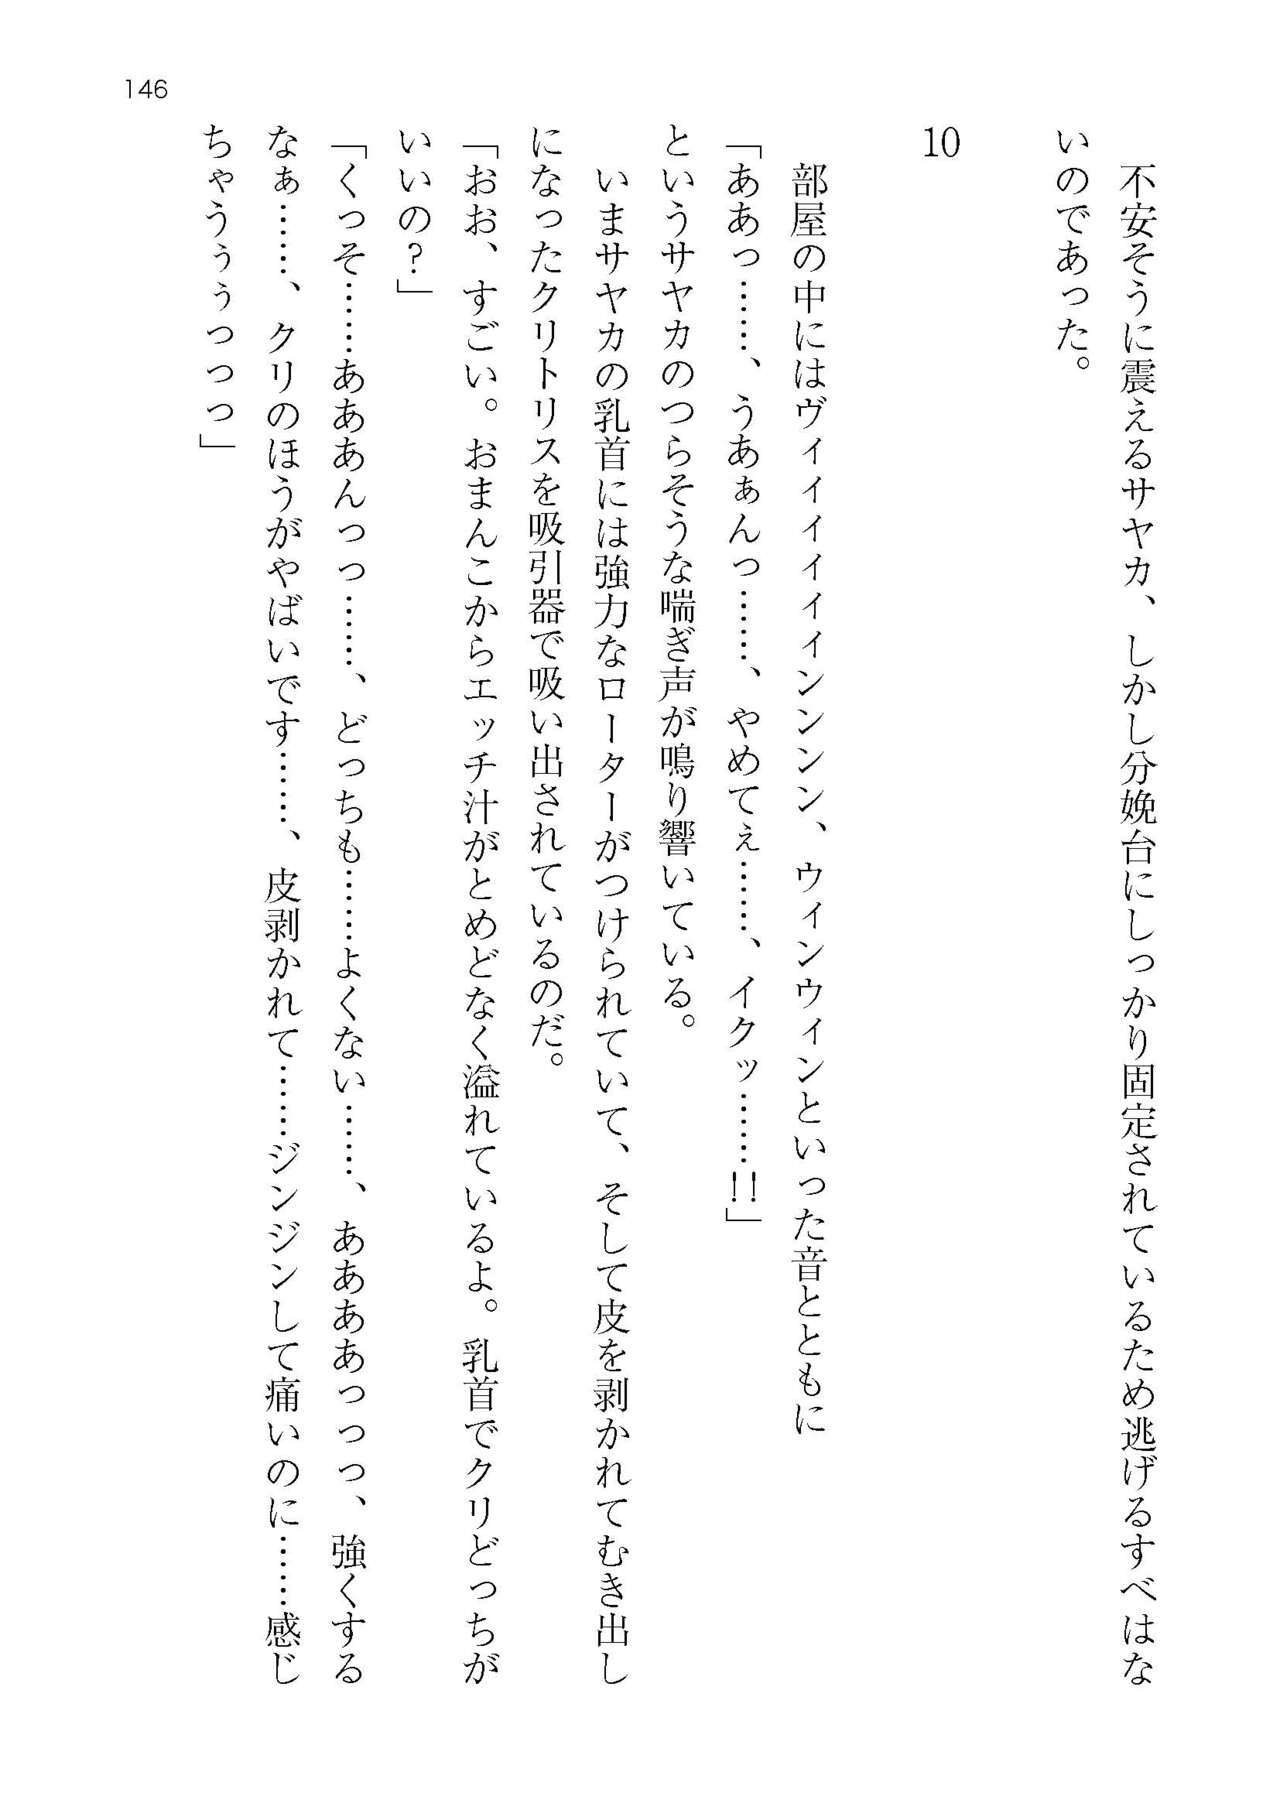 146
不安そうに震えるサヤカ、しかし分娩台にしっかり固定されているため逃げるすべはな
いのであった。
10
部屋の中にはヴィィィィィンンンン、ウィンウィンといった音とともに
「ああっ……、うあぁんっ……、やめてぇ……、イクッ……!!」
というサヤカのつらそうな喘ぎ声が鳴り響いている。
いまサヤカの乳首には強力なローターがつけられていて、そして皮を剥かれてむき出し
になったクリトリスを吸引器で吸い出されているのだ。
「おお、すごい。おまんこからエッチ汁がとめどなく溢れているよ。乳首でクリどっちが
いいの?」
「くっそ……あああんっっ……、どっちも……よくない……、ああああっっっ、強くする
なぁ……、クリのほうがやばいです……、皮剥かれて……ジンジンして痛いのに……感じ
ちゃうぅぅっっっ」